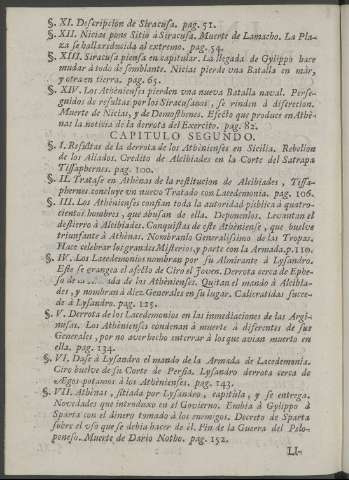 §. XI. Descripcion de Siracusa. pag. 51.
§. XII. Nicias pone Sitio à Siracusa. Muerte de Lamacho. La Pla-
za se halla reducida al extremo. pag. 54.
§. XIII. Siracusa piensa en capitular. La llegada de Gylippo hace
mudar à todo de semblante. Nicias pierde una Batalla en mar,
y otra en tierra. pag. 65.
§. XIV. Los Athènienses pierden una nueva Batalla naval. Perse-
guidos de resultas por los Siracusanos, se rinden à discrecion.
Muerte de Nicias, y de Demosthenes. Efecto que produce en Athè-
nas la noticia de la derrota del Exercito. pag. 82.
CAPITULO SEGUNDO.
§. I. Resultas de la derrota de los Athènienses en Sicilia. Rebelion
de los Aliados. Credito de Alcibiades en la Corte del Satrapa
Tissaphernes. pag. 100.
§. II. Tratase en Athènas de la restitucion de Alcibiades, Tissa-
phernes concluye un nuevo Tratado con Lacedemonia. pag. 106.
§. III. Los Athènienses confian toda la autoridad pública à quatro-
cientos hombres, que abusan de ella. Deponenlos. Levantan el
destierro à Alcibiades. Conquistas de este Athèniense, que buelve
triunfante à Athènas. Nombranlo Generalissimo de las Tropas.
Hace celebrar los grandes Misterios, y parte con la Armada. p. 110.
§. IV. Los Lacedemonios nombran por su Almirante à Lysandro.
Este se grangea el afecto de Ciro el Joven. Derrota cerca de Ephe-
so de la da de los Athènienses. Quitan el mando à Alcibia-
des, y nombran à diez Generales en su lugar. Calicratidas suce-
de à Lysandro. pag. 125.
§. V. Derrota de los Lacedemonios en las immediaciones de las Argi-
nusas. Los Athènienses condenan à muerte à diferentes de sus
Generales, por no aver hecho enterrar à los que avian muerto en
ella. pag. 134.
§. VI. Dase à Lysandro el mando de la Armada de Lacedemonia.
Ciro buelve de su Corte de Persia. Lysandro derrota cerca de
Ægos-potamos à los Athènienses. pag. 143.
§. VII. Athènas, sitiada por Lysandro, capitula, y se entrega.
Novedades que introduxo en el Govierno. Embia à Gylippo à
Sparta con el dinero tomado à los enemigos. Decreto de Sparta
sobre el uso que se debia hacer de èl. Fin de la Guerra del Pelo-
poneso. Muerte de Dario Notho. pag. 152.
LI-